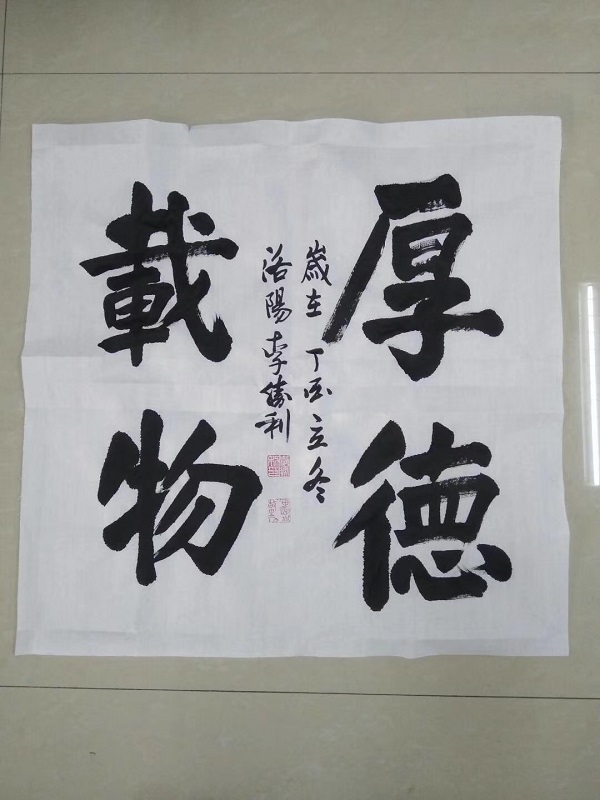 厚德
載物
歲在丁酉立冬
洛陽李勝利